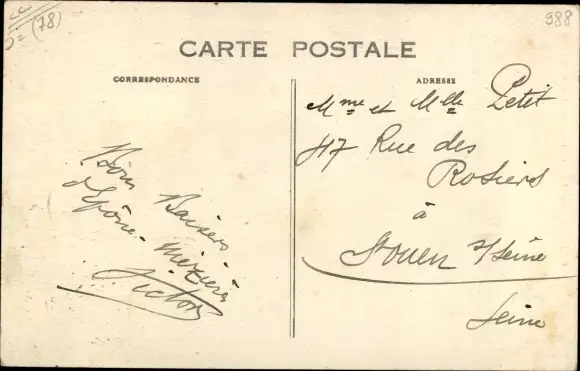 (78)
988
CARTE POSTALE
CORRESPONDANCE
Bons Baisers
d'Epône-Mézières
Victor
ADRESSE
Mme et Mlle Petit
47 Rue des
Rosiers
à
St Ouen s/Seine
Seine